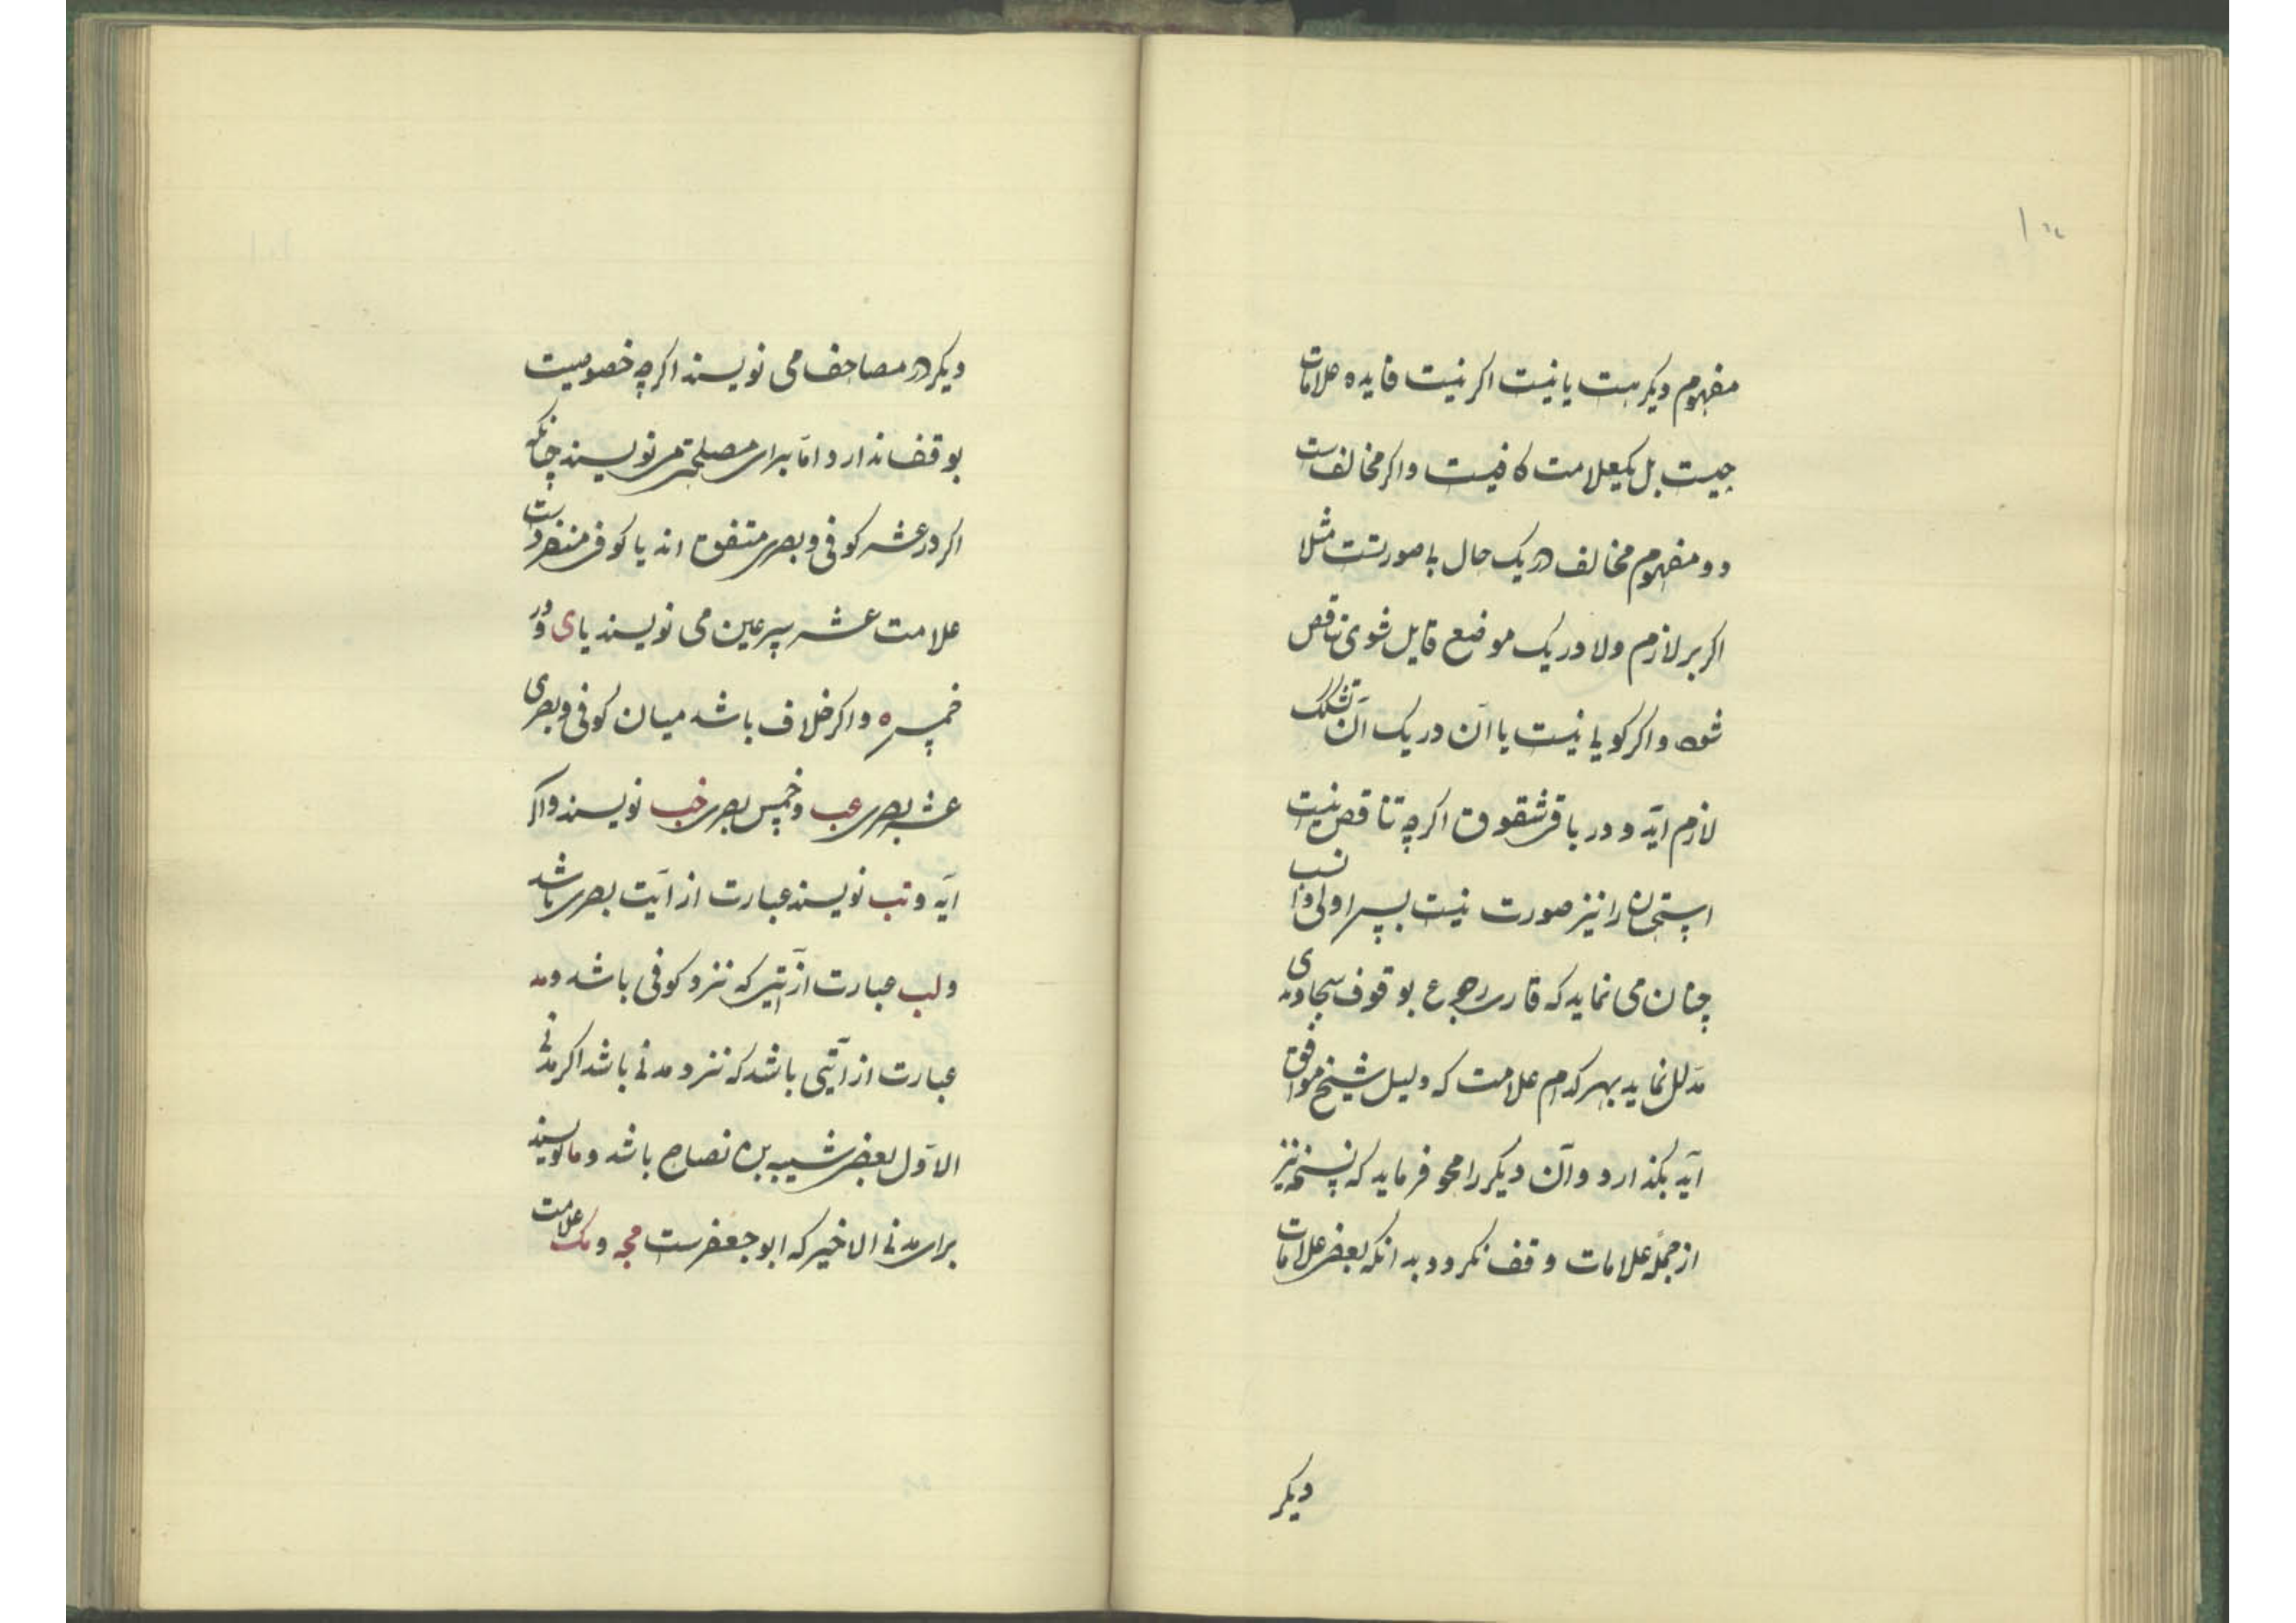 مفهوم دیکر هست یا نیست اکر نیست فایده علامات
چیست بل یکعلامت کافیست و اکر مخالفست
دو مفهوم مخالف در یک حال با صورتست مثلا
اکر بر لازم و لا در یک موضع قایل شوی تناقض
شود و اکر کویی یا نیست یا آن در یک آن تشکک
لازم آید و در باقی شقوق اکرچه تناقض نیست
استحان را نیز صورت نیست پس اولی و انسب
چنان می نماید که قاری رجوع بوقوف سجاوندی
مدلل نماید بهر کدام علامت که دلیل شیخ موافق
آید بکذارد و آن دیکر را محو فرماید که نسخه نیز
از جمله علامات وقف نکردد بدانکه بعضی علامات
دیکر
دیکر در مصاحف می نویسند اکرچه خصوصیت
بوقف ندارد اما برای مصلحتی می نویسند چنانکه
اکر در عشر کوفی و بصری متفق اند یا کوفی منفردست
علامت عشر سر عین می نویسند یا ی و در
خمس ه و اکر خلاف باشد میان کوفی و بصری
عشر بصری عب و خمس بصری خب نویسند و اکر
آیه و تب نویسند عبارت از آیت بصری باشد
و لب عبارت از آیتی که نزد کوفی باشد و مد
عبارت از آیتی باشد که نزد مدنی باشد اکر مدنی
الاول یعنی شیبه بن نصاح باشد و ما نویسند
برای مدنی الاخیر که ابو جعفرست مجه و مک علامت